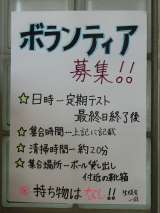 ボランティア
募集!!
☆日時―定期テスト
最終日終了後
☆集合時間―上記に記載
☆清掃時間―約20分
☆集合場所―ボール貸し出し
付近の靴箱
☆持ち物はなし!!